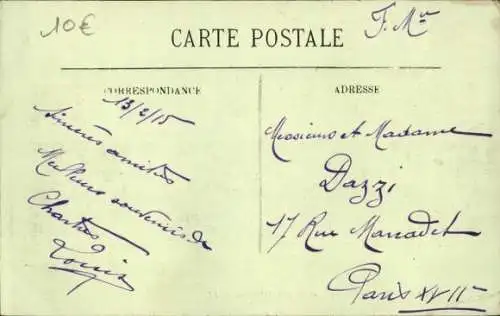 10€
CARTE POSTALE
F. M.
CORRESPONDANCE
13/2/15
Sincères amitiés
Meilleurs souvenirs de
Chartres
Louis
ADRESSE
Messieurs et Madame
Dazzi
17 Rue Marcadet
Paris